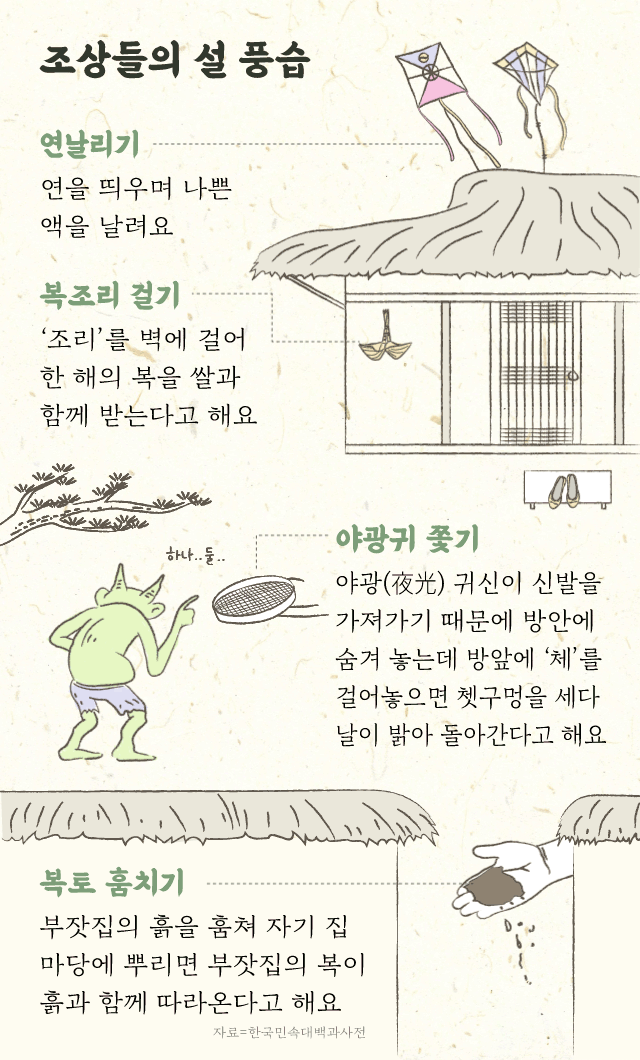 조상들의 설 풍습
연날리기
연을 띄우며 나쁜
액을 날려요
복조리 걸기
‘조리’를 벽에 걸어
한 해의 복을 쌀과
함께 받는다고 해요
하나..둘..
야광귀 쫓기
야광(夜光) 귀신이 신발을
가져가기 때문에 방안에
숨겨 놓는데 방앞에 ‘체’를
걸어놓으면 쳇구멍을 세다
날이 밝아 돌아간다고 해요
복토 훔치기
부잣집의 흙을 훔쳐 자기 집
마당에 뿌리면 부잣집의 복이
흙과 함께 따라온다고 해요
자료=한국민속대백과사전